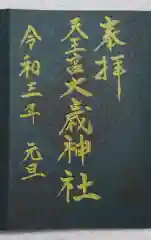 奉拝
天王宮大歳神社
令和三年 元旦